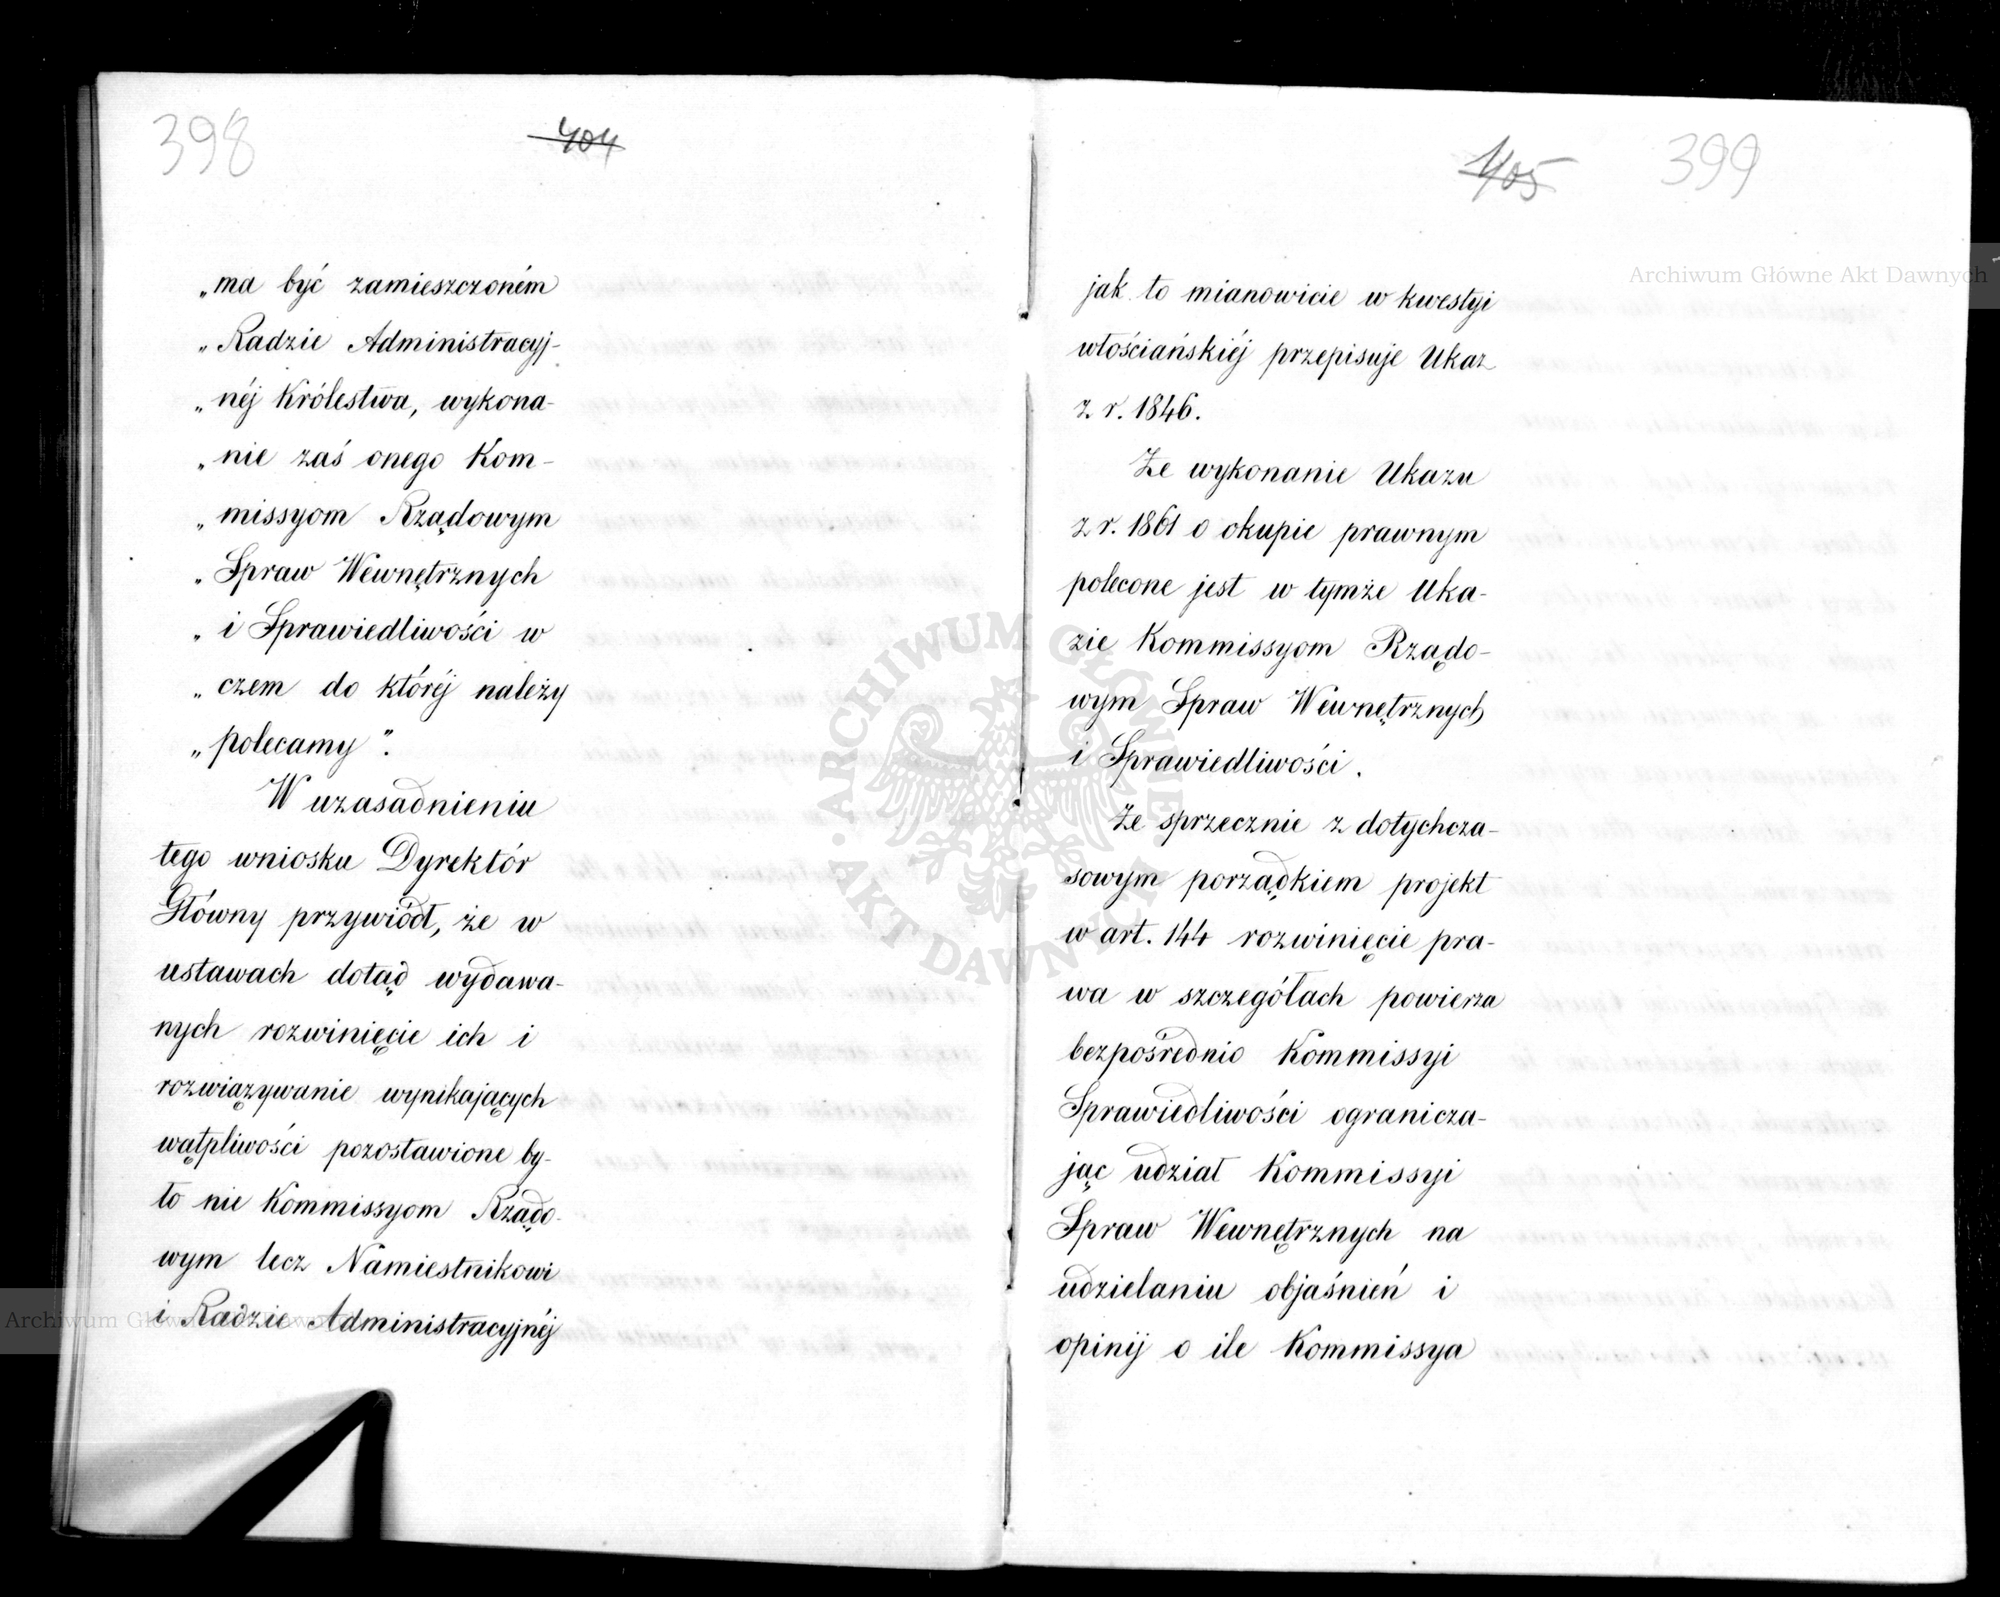 398
404
„ma być zamieszczoném
„Radzie Administracyj-
„néj Królestwa, wykona-
„nie zaś onego Kom-
„missyom Rządowym
„Spraw Wewnętrznych
„i Sprawiedliwości w
„czem do któréj należy
„polecamy".
W uzasadnieniu
tego wniosku Dyrektór
Główny przywiódł, że w
ustawach dotąd wydawa-
nych rozwinięcie ich i
rozwiązywanie wynikających
wątpliwości pozostawione by-
ło nie Kommissyom Rządo-
wym lecz Namiestnikowi
i Radzie Administracyjnéj
405
399
jak to mianowicie w kwestyi
włościańskiéj przepisuje Ukaz
z r. 1846.
Że wykonanie Ukazu
z r. 1861 o okupie prawnym
polecone jest w tymże Uka-
zie Kommissyom Rządo-
wym Spraw Wewnętrznych
i Sprawiedliwości.
Że sprzecznie z dotychcza-
sowym porządkiem projekt
w art. 144 rozwinięcie pra-
wa w szczegółach powierza
bezpośrednio Kommissyi
Sprawiedliwości ogranicza-
jąc udział Kommissyi
Spraw Wewnętrznych na
udzielaniu objaśnień i
opinij o ile Kommissya
Archiwum Główne Akt Dawnych
ARCHIWUM GŁÓWNE AKT DAWNYCH